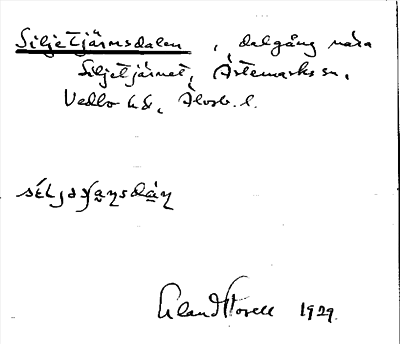 Siljetjärnsdalen, dalgång nära
Siljetjärnet, Ärtemarks sn,
Vedbo hd, Älvsb. l.
Erland Torell 1929.